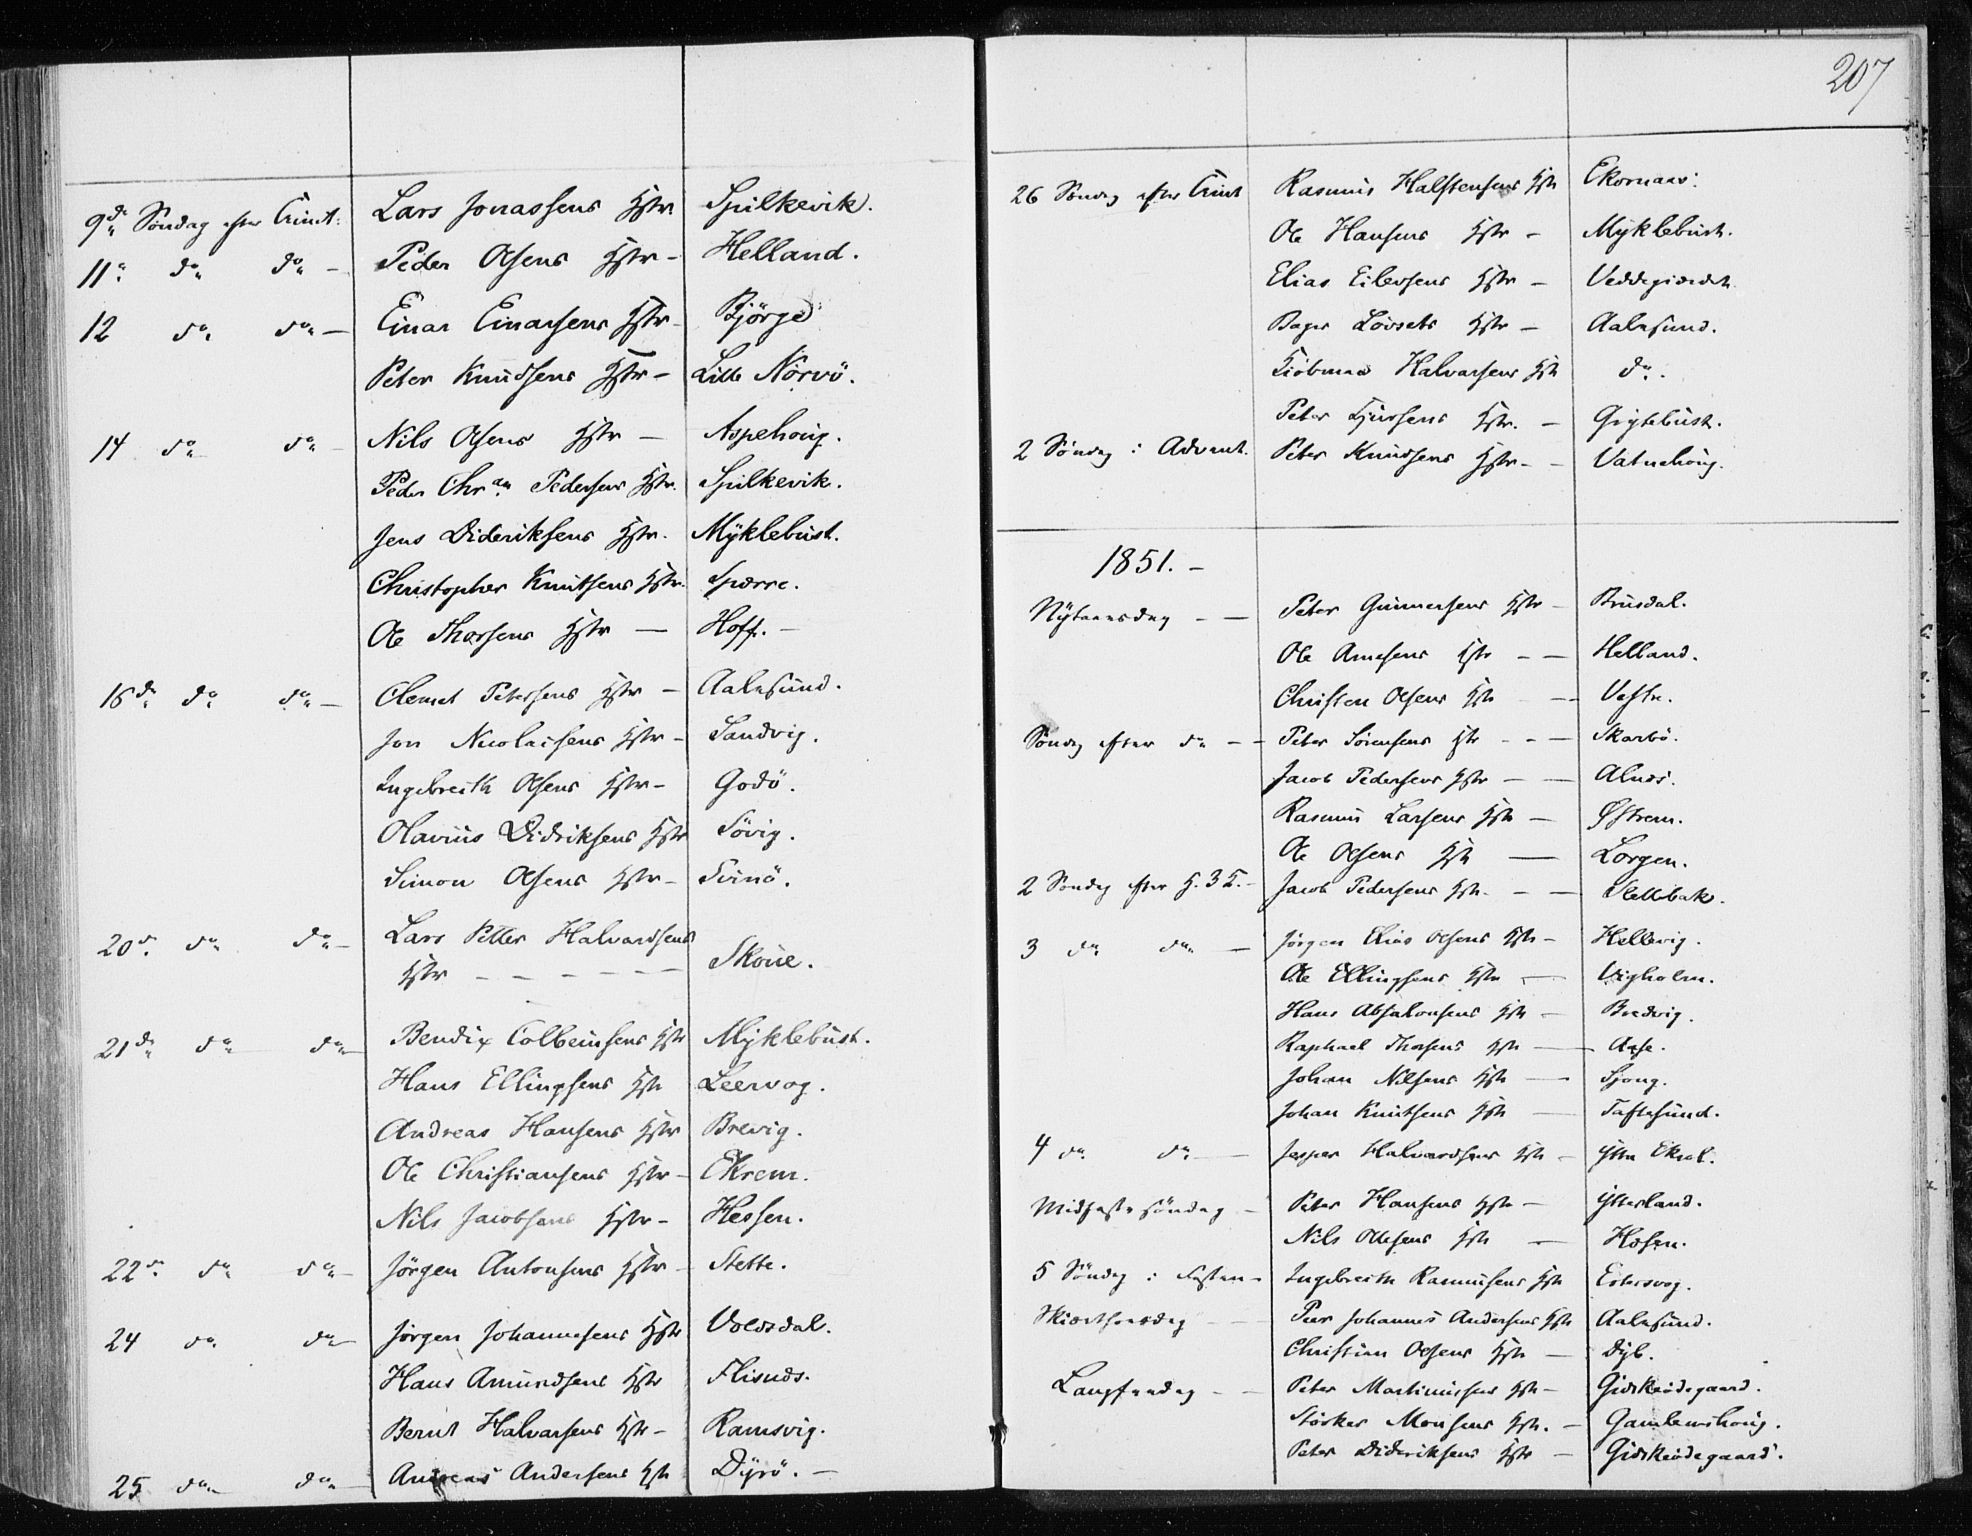 9de Søndag efter Trinit: Lars Jonassens Hstr Spilkevik.
11" do do — Peder Olsens Hstr — Helland.
12 do do — Einar Einarsens Hstr — Bjørge
Peter Knudsens Hstr — Lille Nørvö.
14 do do — Nils Olsens Hstr — Aspehoug.
Peder Chran Pedersens Hstr. Spilkevik.
Jens Dideriksens Hstr. Myklebust.
Christopher Knutsens Hstr. Sperre.
Ole Thorsens Hstr — Hoff. —
18de do do — Clemet Petersens Hstr — Aalesund.
Jon Nicolaisens Hstr — Sandvig.
Ingebreith Olsens Hstr — Godö.
Olavius Didriksens Hstr Sövig.
Simon Olsens Hstr — Svinö.
20d. do do — Lars Petter Halvardsens
Hstr — — — — — — Skoue.
21de do do — Bendix Colbeinsens Hstr Myklebust.
Hans Ellingsens Hstr Leervog.
Andreas Hansens Hstr Brevig.
Ole Christiansens Hstr — Ekrem.
Nils Jacobsens Hstr — Hessen.
22de do do — Jörgen Antonsens Hstr — Stette.
24 do do — Jörgen Johannesens Hstr Voldsdal.
Hans Amundsens Hstr Flisnæs.
Bernt Halvarsens Hstr — Ramsvig.
25 do do — Andreas Andersens Hstr Dyrö. —
207
26 Søndag efter Trinit Rasmus Halstensens Hstr Ekornæs.
Ole Hansens Hstr — Myklebust.
Elias Eilersens Hstr — Veddegierdet
Bager Lövsets Hstr — Aalesund.
Kiöbmand Halvarsens Hstr do.
Peter Sjursens Hstr. — Gigtebust.
2 Søndag i Advent. Peter Knudsens Hstr — — Vatnehoug.
1851. —
Nytaarsdag — — Peter Gunnersens Hstr — Brusdal.
Ole Arnesens Hstr — — Helland.
Christen Olsens Hstr — — Vestre.
Søndag efter do — — Peter Sörensens Hstr — — — Skarbö.
Jacob Pedersens Hstr — — Alnæs.
Rasmus Larsens Hstr — Østrem.
Ole Olsens Hstr — Lorgen.
2 Søndag efter H. 3 K. — Jacob Pedersens Hstr. — — Slettebak.
3 do do — Jörgen Elias Olsens Hstr — Hellevig.
Ole Ellingsens Hstr — Vigholm.
Hans Absalonsens Hstr — Bredvig.
Raphael Thorsens Hstr — Aase.
Johan Nilsens Hstr — Sjong.
Johan Knutsens Hstr — Taftesund.
4 do do — Jesper Halvardsens Hstr — Ytre Eksæt.
Midfastesöndag — Peter Hansens Hstr — Ytterland.
Nils Olesens Hstr — Hosen.
5 Söndag i Fasten — Ingebreith Rasmusens Hstr
Skiærthorsdag — — Peer Johannes Andersens Hstr Aalesund.
Christian Olsens Hstr — Dyb.
Langfredag — — Peter Martinussens Hstr — Gidskeödegaard.
Störker Monsens Hstr. — Gamlemshoug.
Peter Dideriksens Hstr — Gidskeödegaard.